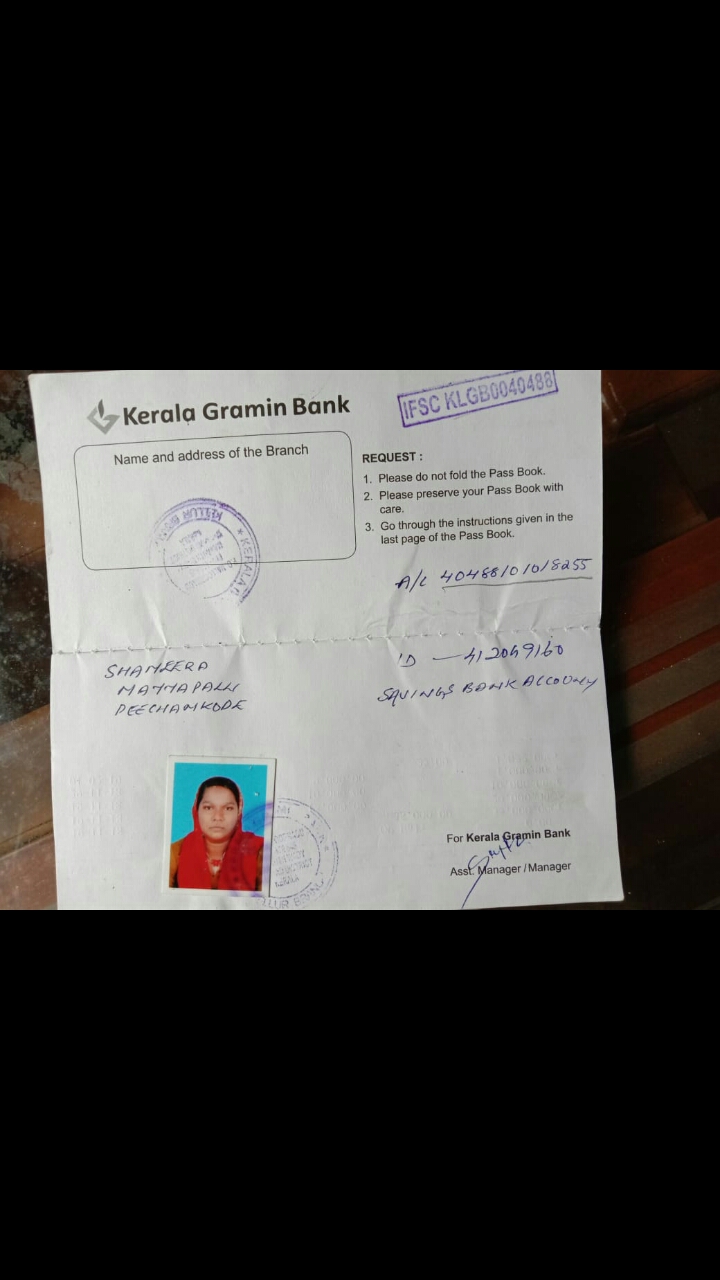 Kerala Gramin Bank
IFSC KLGB0040488
Name and address of the Branch
KELLUR BRANCH
REQUEST :
1. Please do not fold the Pass Book.
2. Please preserve your Pass Book with
care.
3. Go through the instructions given in the
last page of the Pass Book.
A/C 40488101018255
SHAMEERA
PEECHAMKODE
ID — 412049160
SAVINGS BANK ACCOUNT
For Kerala Gramin Bank
Asst. Manager / Manager